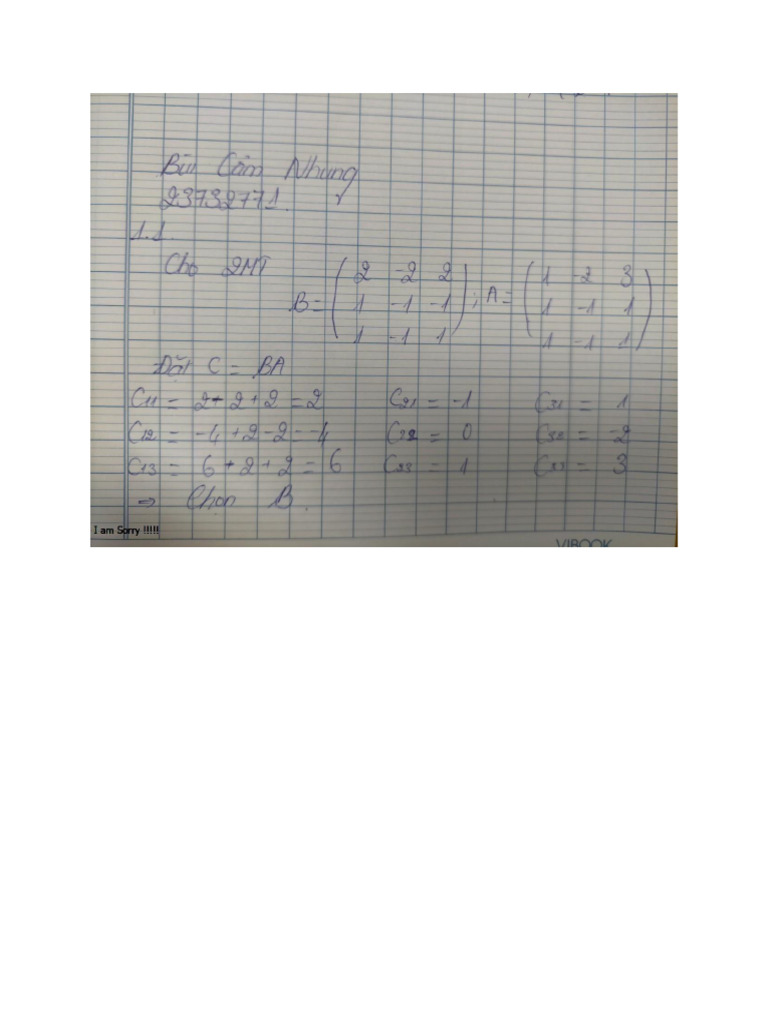 Bùi Cẩm Nhung
23732771.
1.1.
Cho 2MT
B = ( 2 -2 2 ; 1 -1 -1 ; 1 -1 1 ) ; A = ( 1 -2 3 ; 1 -1 1 ; 1 -1 1 )
Đặt C = BA
C11 = 2 - 2 + 2 = 2 C21 = -1 C31 = 1
C12 = -4 + 2 - 2 = -4 C22 = 0 C32 = -2
C13 = 6 - 2 + 2 = 6 C23 = 1 C33 = 3
⇒ Chọn B.
I am Sorry !!!!!
VIBOOK